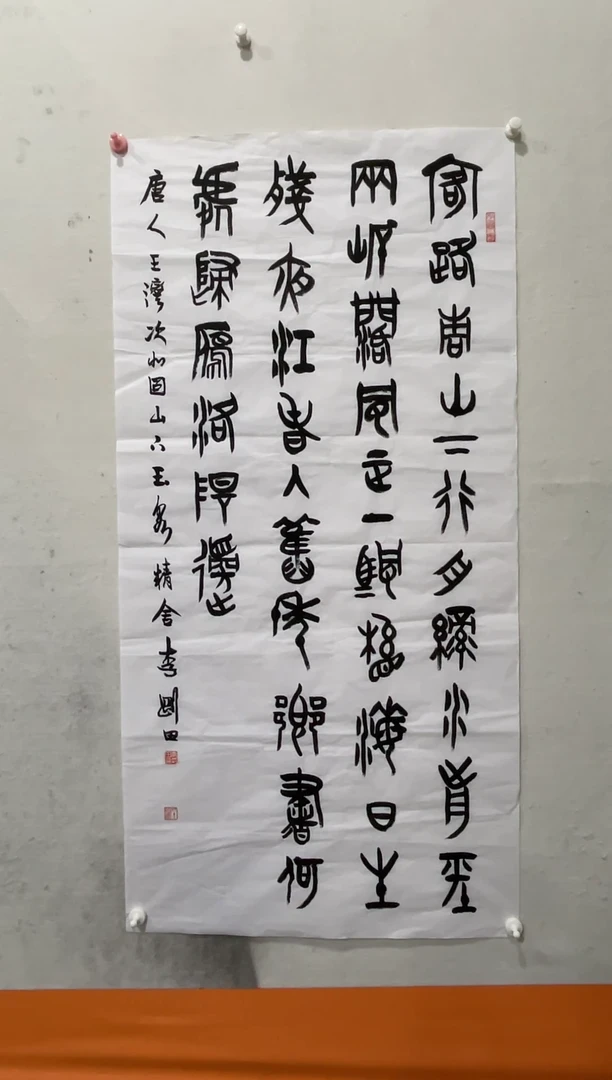 客路青山下行舟綠水前平
兩岸闊風正一帆懸海日生
殘夜江春入舊年鄉書何
處歸雁洛陽邊
唐人王灣次北固山下 精舍 李剛田